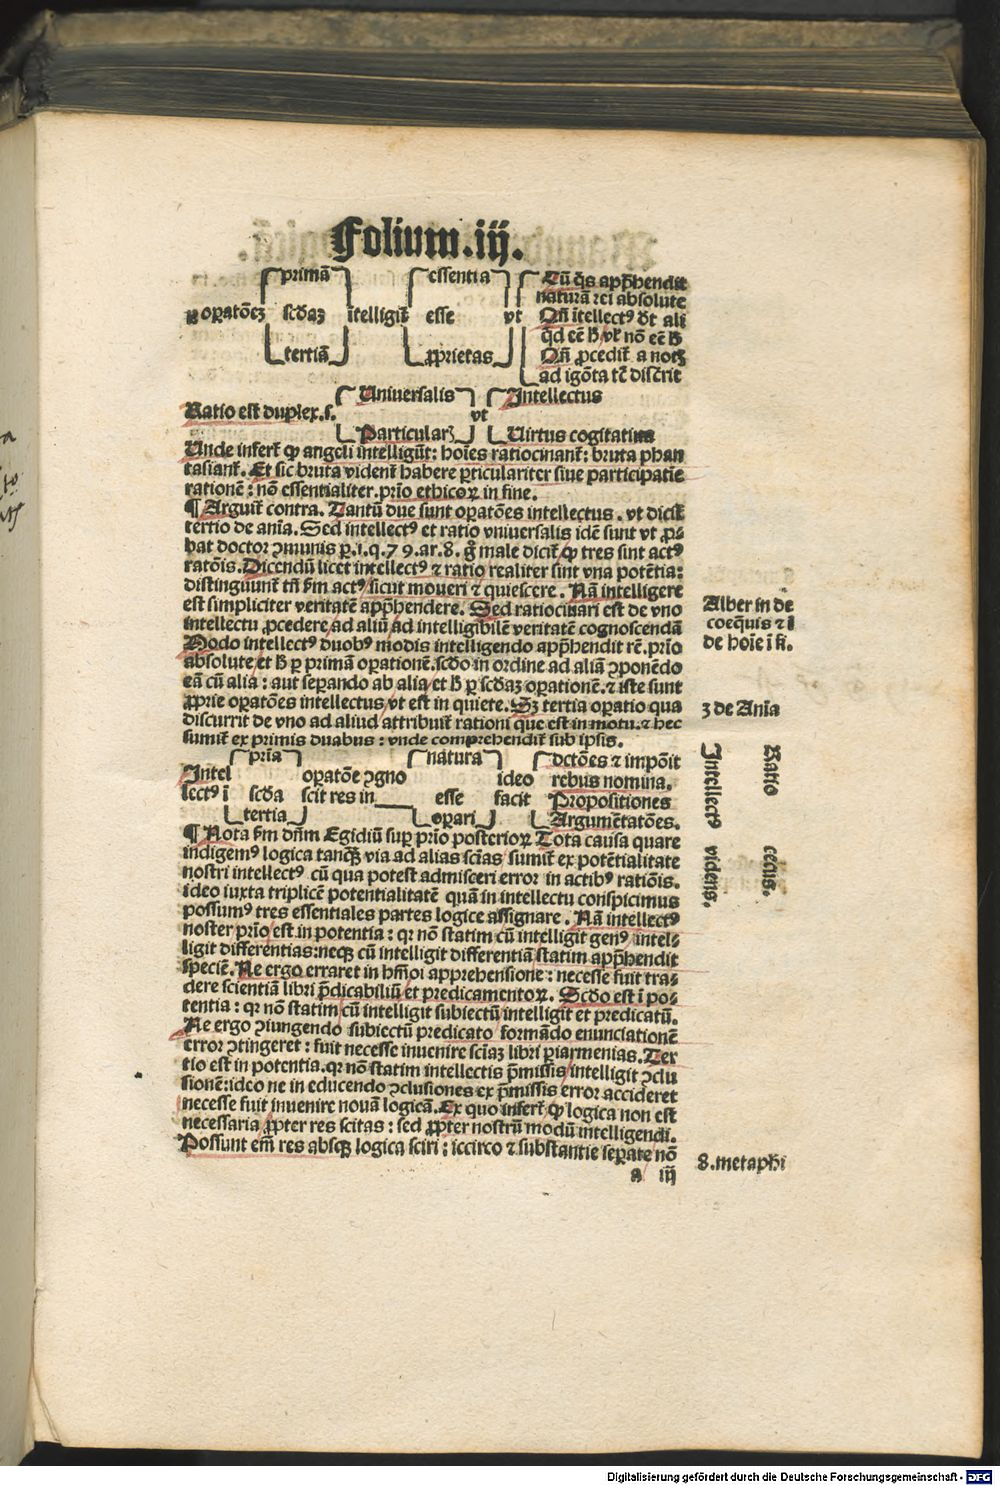 Folium.iij.
primā essentia Cū q̄s app̄hendit
naturā rei absolute
oꝑatōeꝫ scḋaꝫ ītelligiť esse vt Qn̄ ītellectꝰ ďt ali
q̇d eē ħ vť nō eē ħ
tertiā ꝓprietas Qn̄ ꝓcediť a notꝭ
ad igōta tē discřit
Uniuersalis Intellectus
Ratio est duplex.s. vt
Particularꝭ Uirtus cogitatiua
Unde inferť ꝙ angeli intelligūt: hoīes ratiocinanť: bruta phan
tasianť. Et sic bruta videnť habere ꝑticulariter siue participatie
rationē: nō essentialiter.pr̄io ethicoꝝ in fine.
¶ Arguiť contra. Tantū due sunt oꝑatōes intellectus. vt diciť
tertio de anīa. Sed intellectꝰ et ratio vniuersalis idē sunt vt ꝓ⸗
bat doctor ꝯmunis ꝑ.i.q.79.ar.8. g̊ male diciť ꝙ tres sint actꝰ
ratōis. Dicendū licet intellectꝰ ⁊ ratio realiter sint vna potētia:
distinguūnt tn̄ ẜm actꝰ sicut moueri ⁊ quiescere. Nā intelligere
est simpliciter veritatē app̄hendere. Sed ratiocinari est de vno
intellectu ꝓcedere ad aliū ad intelligibilē veritatē cognoscendā
Modo intellectꝰ duobꝰ modis intelligendo app̄hendit rē.pr̄io
absolute et ħ ꝑ primā oꝑationē.scḋo in ordine ad aliā ꝯponēdo
eā cū alia: aut seꝑando ab alia et ħ ꝑ scḋaꝫ oꝑationē.⁊ iste sunt
ꝓprie oꝑatōes intellectus vt est in quiete. Sꝫ tertia oꝑatio qua
discurrit de vno ad aliud attribuiť rationi que est in motu.⁊ hec
sumiť ex primis duabus: vnde comprehendiť sub ipsis.
pr̄ia natura dctōes ⁊ impōit
Intel oꝑatōe ꝯgno ideo rebus nomina.
lectꝰ ī scḋa scit res in esse facit Propositiones
tertia oꝑari Argumētatōes.
¶ Nota ẜm dn̄m Egidiū suꝑ pr̄io posterioꝝ Tota causa quare
indigemꝰ logica tanꝗ via ad alias scīas sumiť ex potētialitate
nostri intellectꝰ cū qua potest admisceri error in actibꝰ ratiōis.
ideo iuxta triplicē potentialitatē quā in intellectu conspicimus
possumꝰ tres essentiales partes logice assignare. Nā intellectꝰ
noster pr̄io est in potentia: qꝛ nō statim cū intelligit genꝰ intel⸗
ligit differentias:neqꝫ cū intelligit differentiā statim app̄hendit
speciē. Ne ergo erraret in hm̄oi apprehensione: necesse fuit tra⸗
dere scientiā libri p̄dicabiliū et predicamentoꝝ. Scḋo est ī po⸗
tentia: qꝛ nō statim cū intelligit subiectū intelligit et predicatū.
Ne ergo ꝯiungendo subiectū predicato formādo enunciationē
error ꝯtingeret: fuit necesse inuenire scīaꝫ libri ꝑiarmenias. Ter
tio est in potentia.qꝛ nō statim intellectis p̄missis intelligit ꝯclu
sionē:ideo ne in educendo ꝯclusiones ex p̄missis error accideret
necesse fuit inuenire nouā logicā. Ex quo inferť ꝙ logica non est
necessaria ꝓpter res scitas: sed ꝓpter nostrū modū intelligendi.
Possunt em̄ res absqꝫ logica sciri: iccirco ⁊ substantie seꝑate nō
a iij
Alber in de
coequis ⁊ ī
de hoīe ī fi.
3 de Anīa
Ratio cecus.
Intellectꝰ videns.
8.metaphi
Digitalisierung gefördert durch die Deutsche Forschungsgemeinschaft - DFG